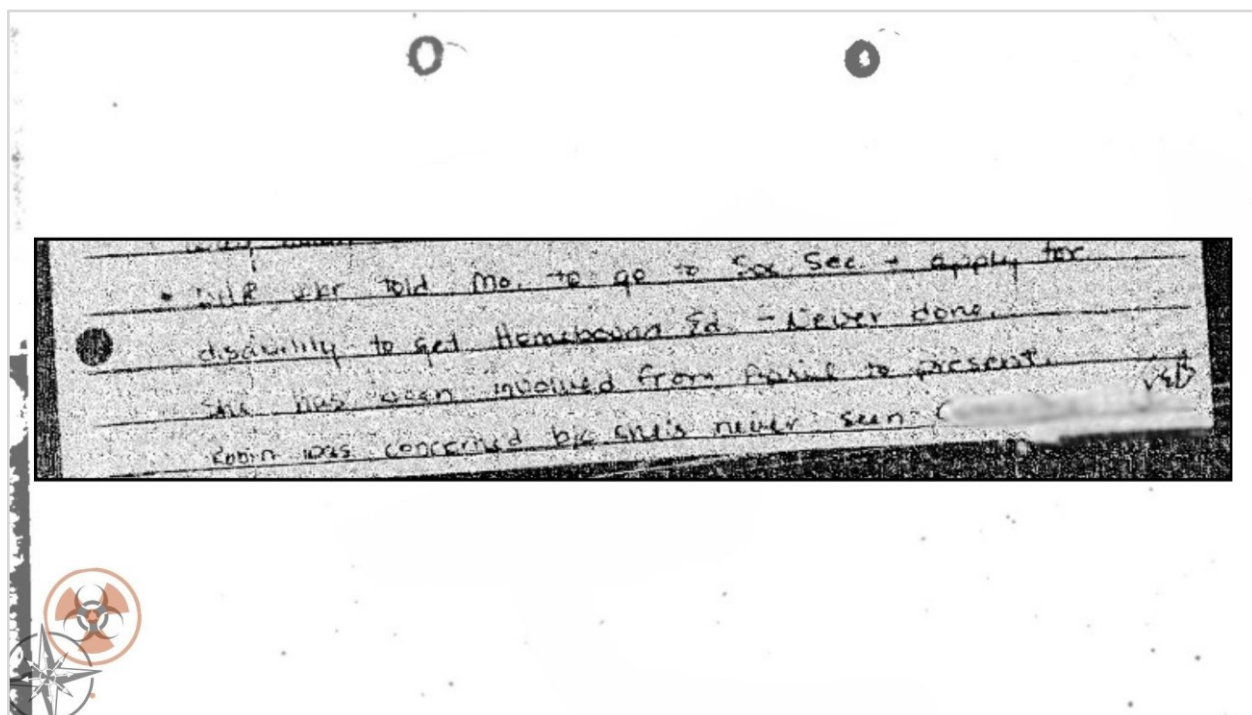 told Mo. to go to Soc Sec + apply for
disability to get Homebound Ed. - Never done.
She has been involved from April to present.
Robin was concerned b/c she's never seen